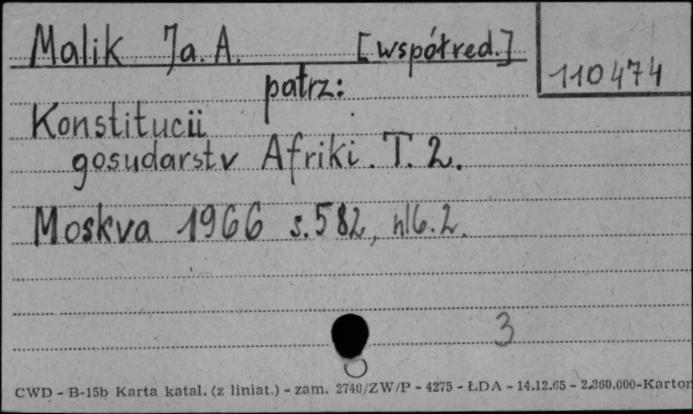 Malik Ja. A. [współred.]
110474
patrz:
Konstitucii
gosudarstv Afriki. T. 2.
Moskva 1966 s. 582, nlb. 2.
3
CWD - B-15b Karta katal. (z liniat.) - zam. 2740/ZW/P - 4275 - ŁDA - 14.12.65 - 2.360.000-Karton